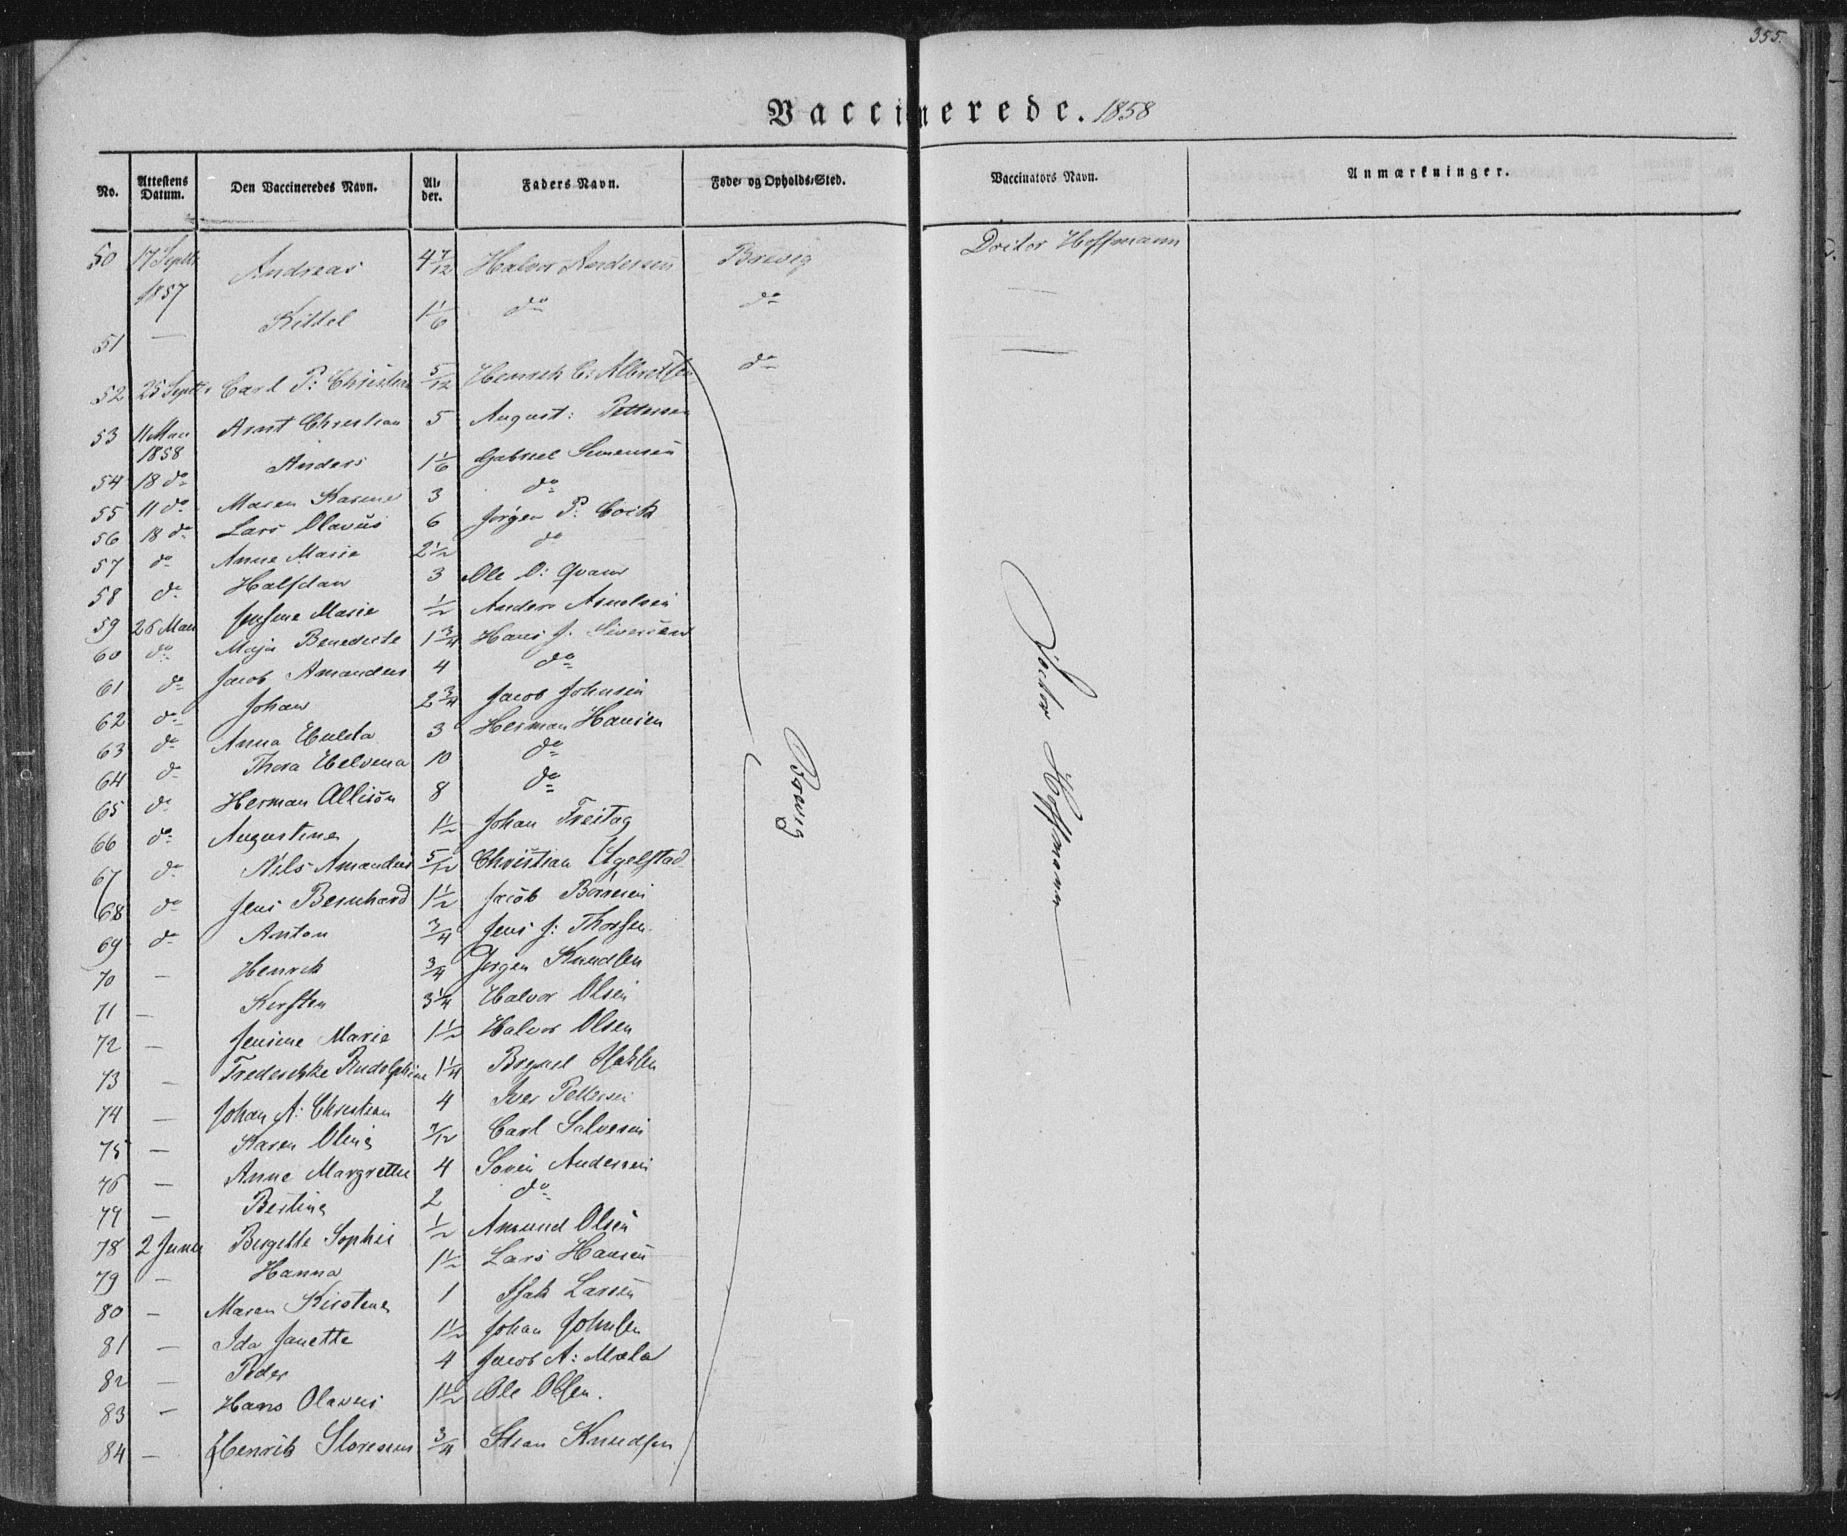 355.
Vaccinerede. 1858
No. Attestens Datum. Den Vaccineredes Navn. Alder. Faders Navn. Føde- og Opholds-Sted. Vaccinators Navn. Anmærkninger.
50 17 Septbr 1857 Andreas 4 7/12 Halvor Andersen Brevig Doctor Hoffmann
51 — Kittel 1 1/6 do do —
52 25 Septbr Carl P: Christian 5/12 Henrik C: Albretsen do —
53 11 Mai 1858 Arnt Christian 5 August: Pettersen
54 18 do Anders 1 1/6 Gabriel Simensen
55 11 do Maren Karine 3 do
56 18 do Lars Olavus 6 Jørgen P.
57 do Anne Marie 2 1/2 do
58 do Halfdan 3 Ole O: Qvam
59 26 Mai Marie 1/2 Anders
60 do Maja Benedicte 1 3/4 Hans J. Siversen
61 do Jacob Amandus 4 do
62 do Johan 2 3/4 Jacob Johnsen
63 do Anna Hulda 3 Herman Hansen
64 do Thora Helvina 10 do
65 do Herman Allison 8 do
66 do Augustine 1 1/2 Johan Freitag
67 do Nils Amandus 5/12 Christian
68 do Jens Bernhard 1 1/2 Jacob
69 do Anton 3/4 Jens J: Thorsen.
70 — Henrik 3/4 Jørgen Knudsen
71 — Kirsten 3 1/4 Halvor Olsen
72 — Jensine Marie 1 1/2 Halvor Olsen
73 — Frederikke Rudolphine 1 1/4
74 — Johan A: Christian 4 Iver Pettersen
75 — Karen Oline 7/12 Carl Salvesen
76 — Anne Margrethe 4 Søren Andersen
77 — Bertine 2 do
78 2 Juni Birgitte Sophie 1/2 Amund Olsen
79 — Hanna 1 1/2 Lars Hansen
80 — Maren Kirstine 1 Isak Larsen
81 — Ida Janette 1 1/2 Johan Johnsen
82 — Peder 4 Jacob A:
83 — Hans Olavus 1 1/2 Ole Olsen.
84 — Henrik 3/4 Knudsen
Brevig
Doctor Hoffmann